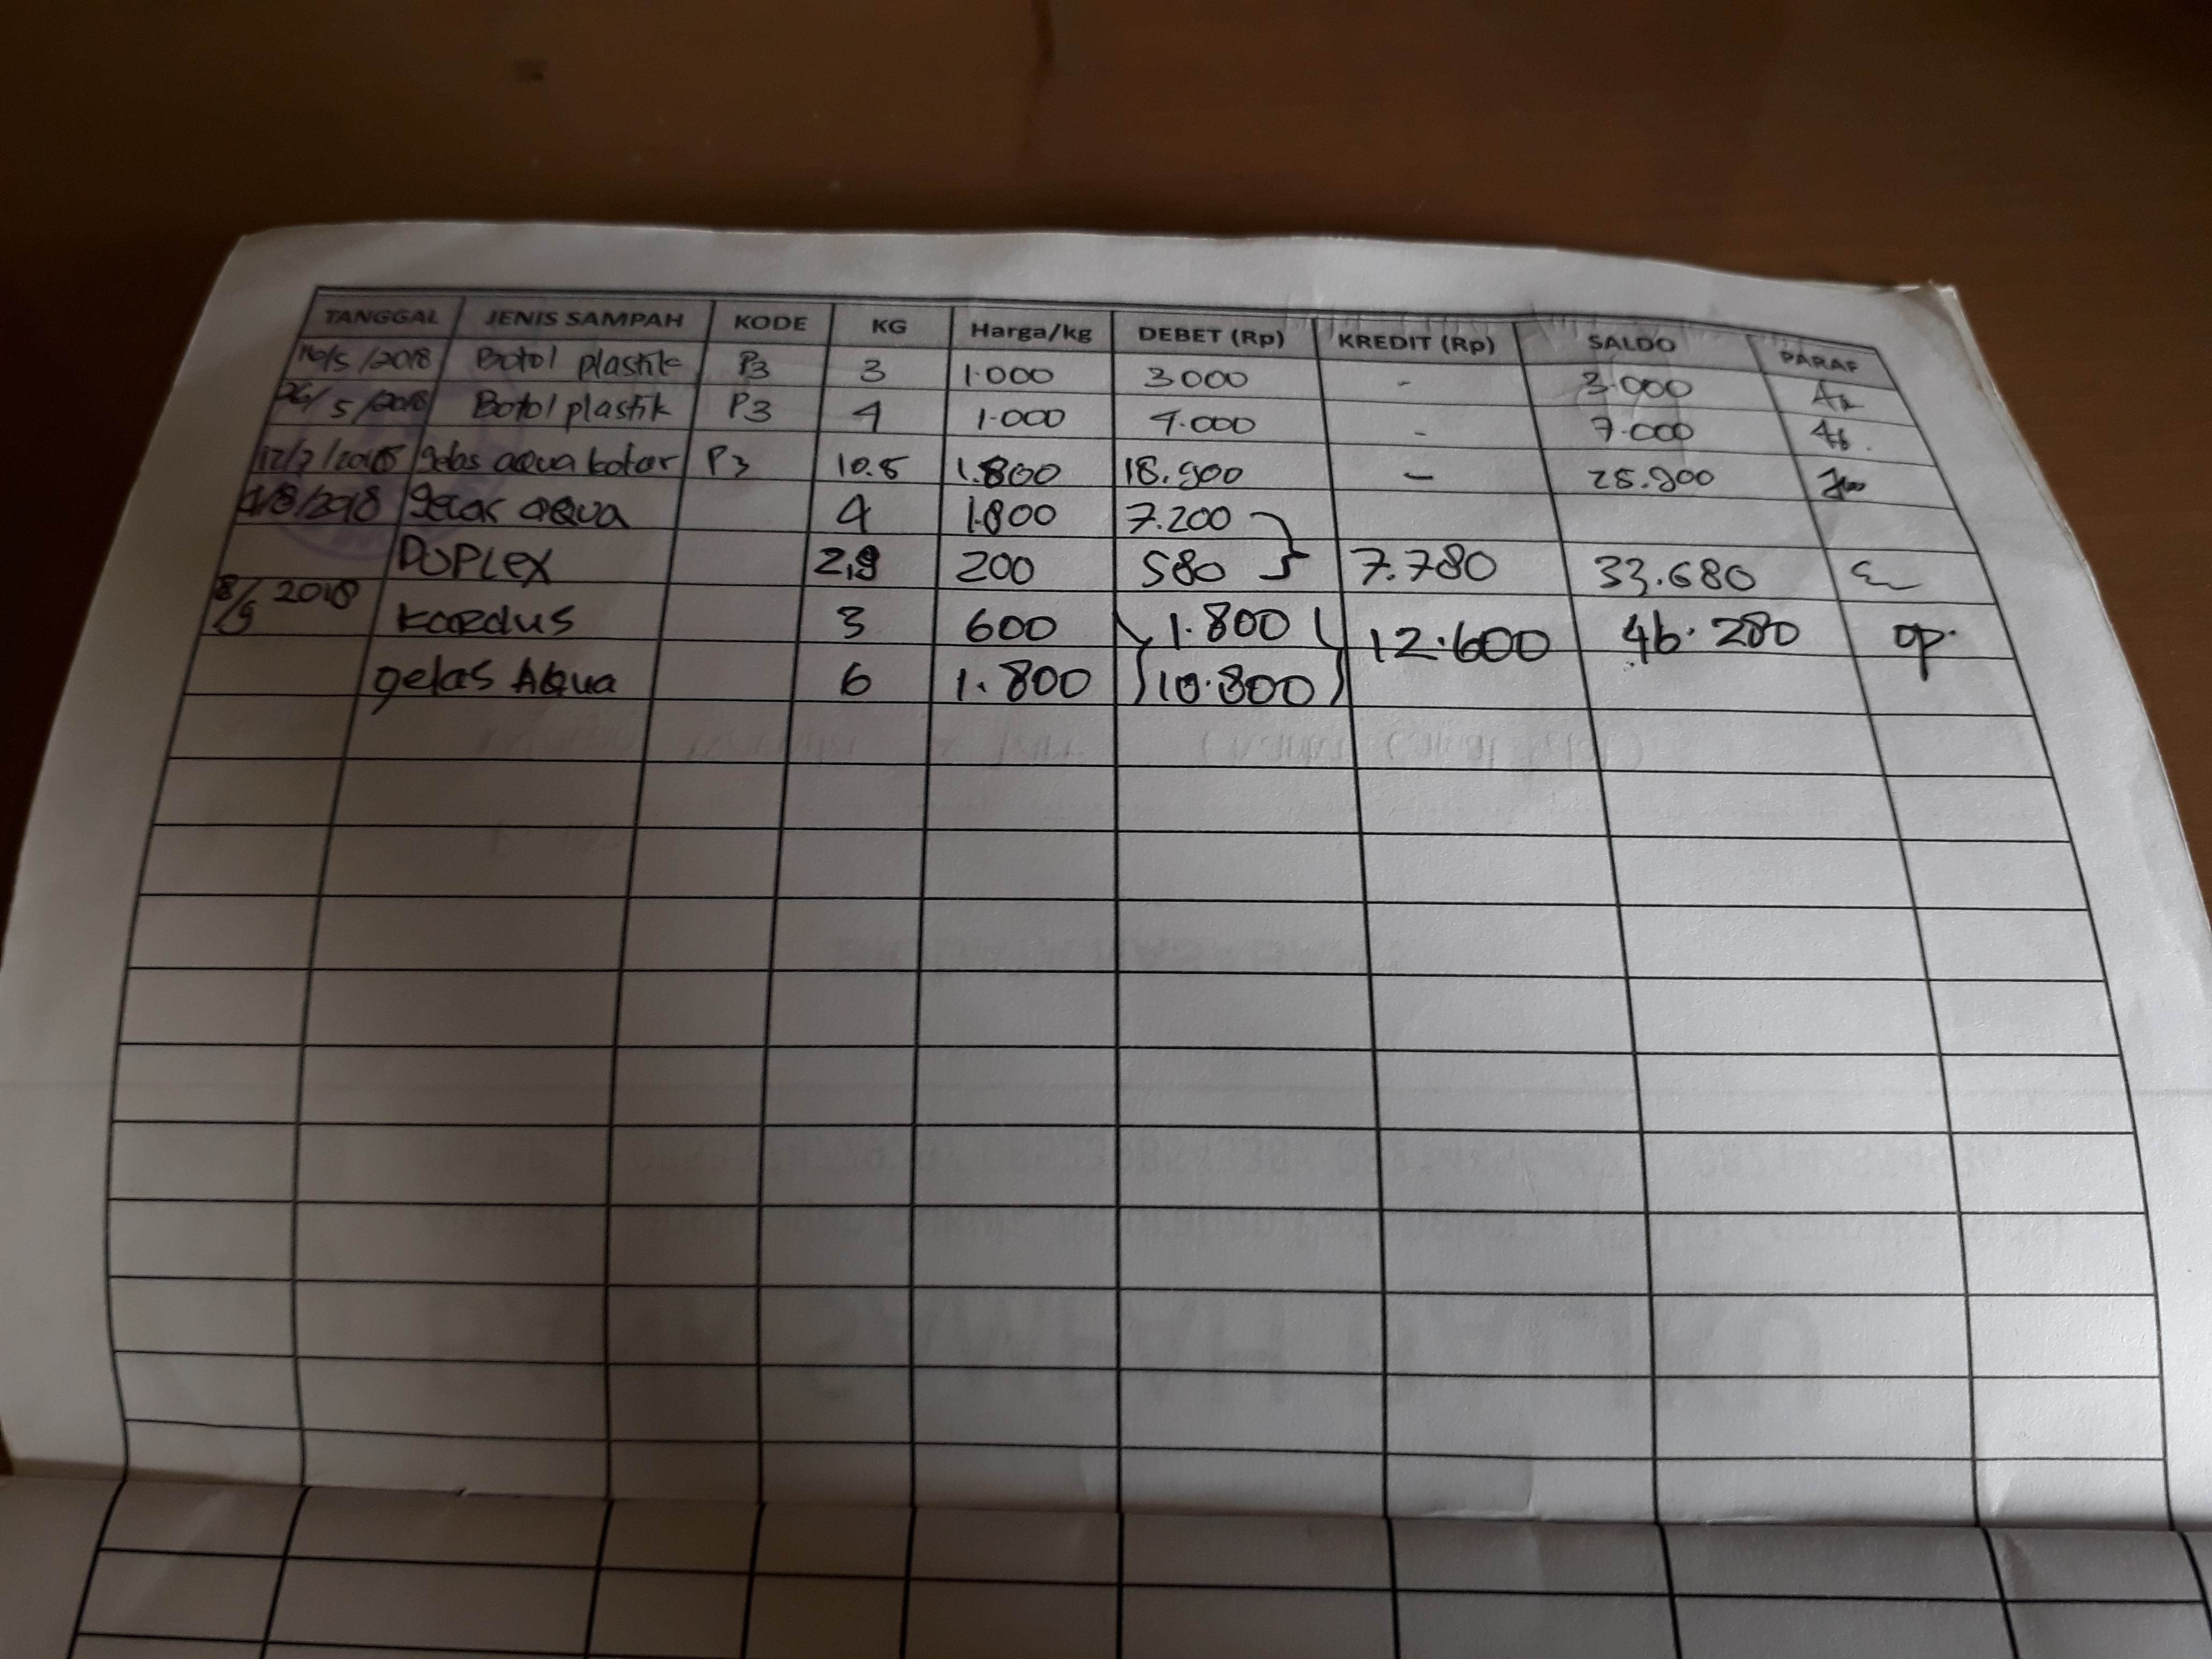 TANGGAL JENIS SAMPAH KODE KG Harga/kg DEBET (Rp) KREDIT (Rp) SALDO PARAF
16/5/2018 Botol plastik P3 3 1.000 3000 - 3.000
26/5/2018 Botol plastik P3 4 1.000 4.000 - 7.000
12/7/2018 gelas aqua kotor P3 10.5 1.800 18.900 - 25.900
4/8/2018 gelas aqua 4 1.800 7.200
DUPLEX 2,9 200 580 7.780 33.680
8/9 2018 kardus 3 600 1.800 12.600 46.280 op.
gelas Aqua 6 1.800 10.800